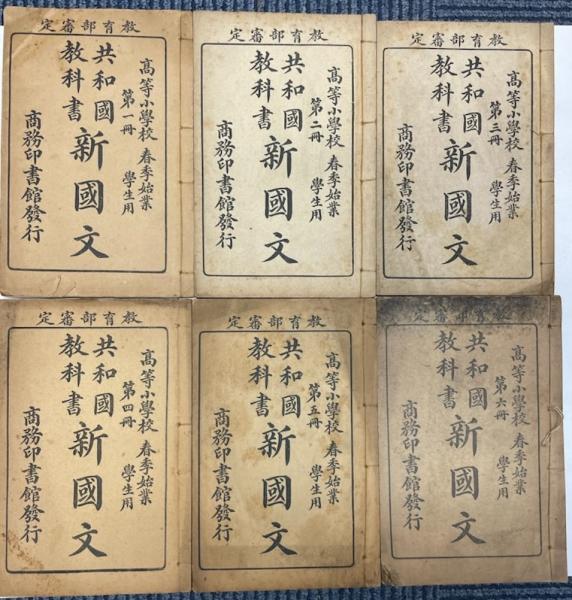 教育部審定
高等小學校 春季始業
第一冊 學生用
共和國
教科書
新國文
商務印書館發行
教育部審定
高等小學校 春季始業
第二冊 學生用
共和國
教科書
新國文
商務印書館發行
教育部審定
高等小學校 春季始業
第三冊 學生用
共和國
教科書
新國文
商務印書館發行
教育部審定
高等小學校 春季始業
第四冊 學生用
共和國
教科書
新國文
商務印書館發行
教育部審定
高等小學校 春季始業
第五冊 學生用
共和國
教科書
新國文
商務印書館發行
教育部審定
高等小學校 春季始業
第六冊 學生用
共和國
教科書
新國文
商務印書館發行